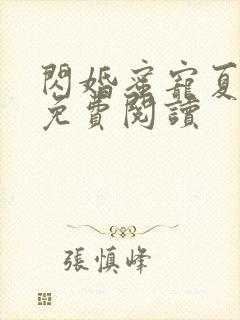 閃婚蜜寵夏
免費閱讀
張慎峰